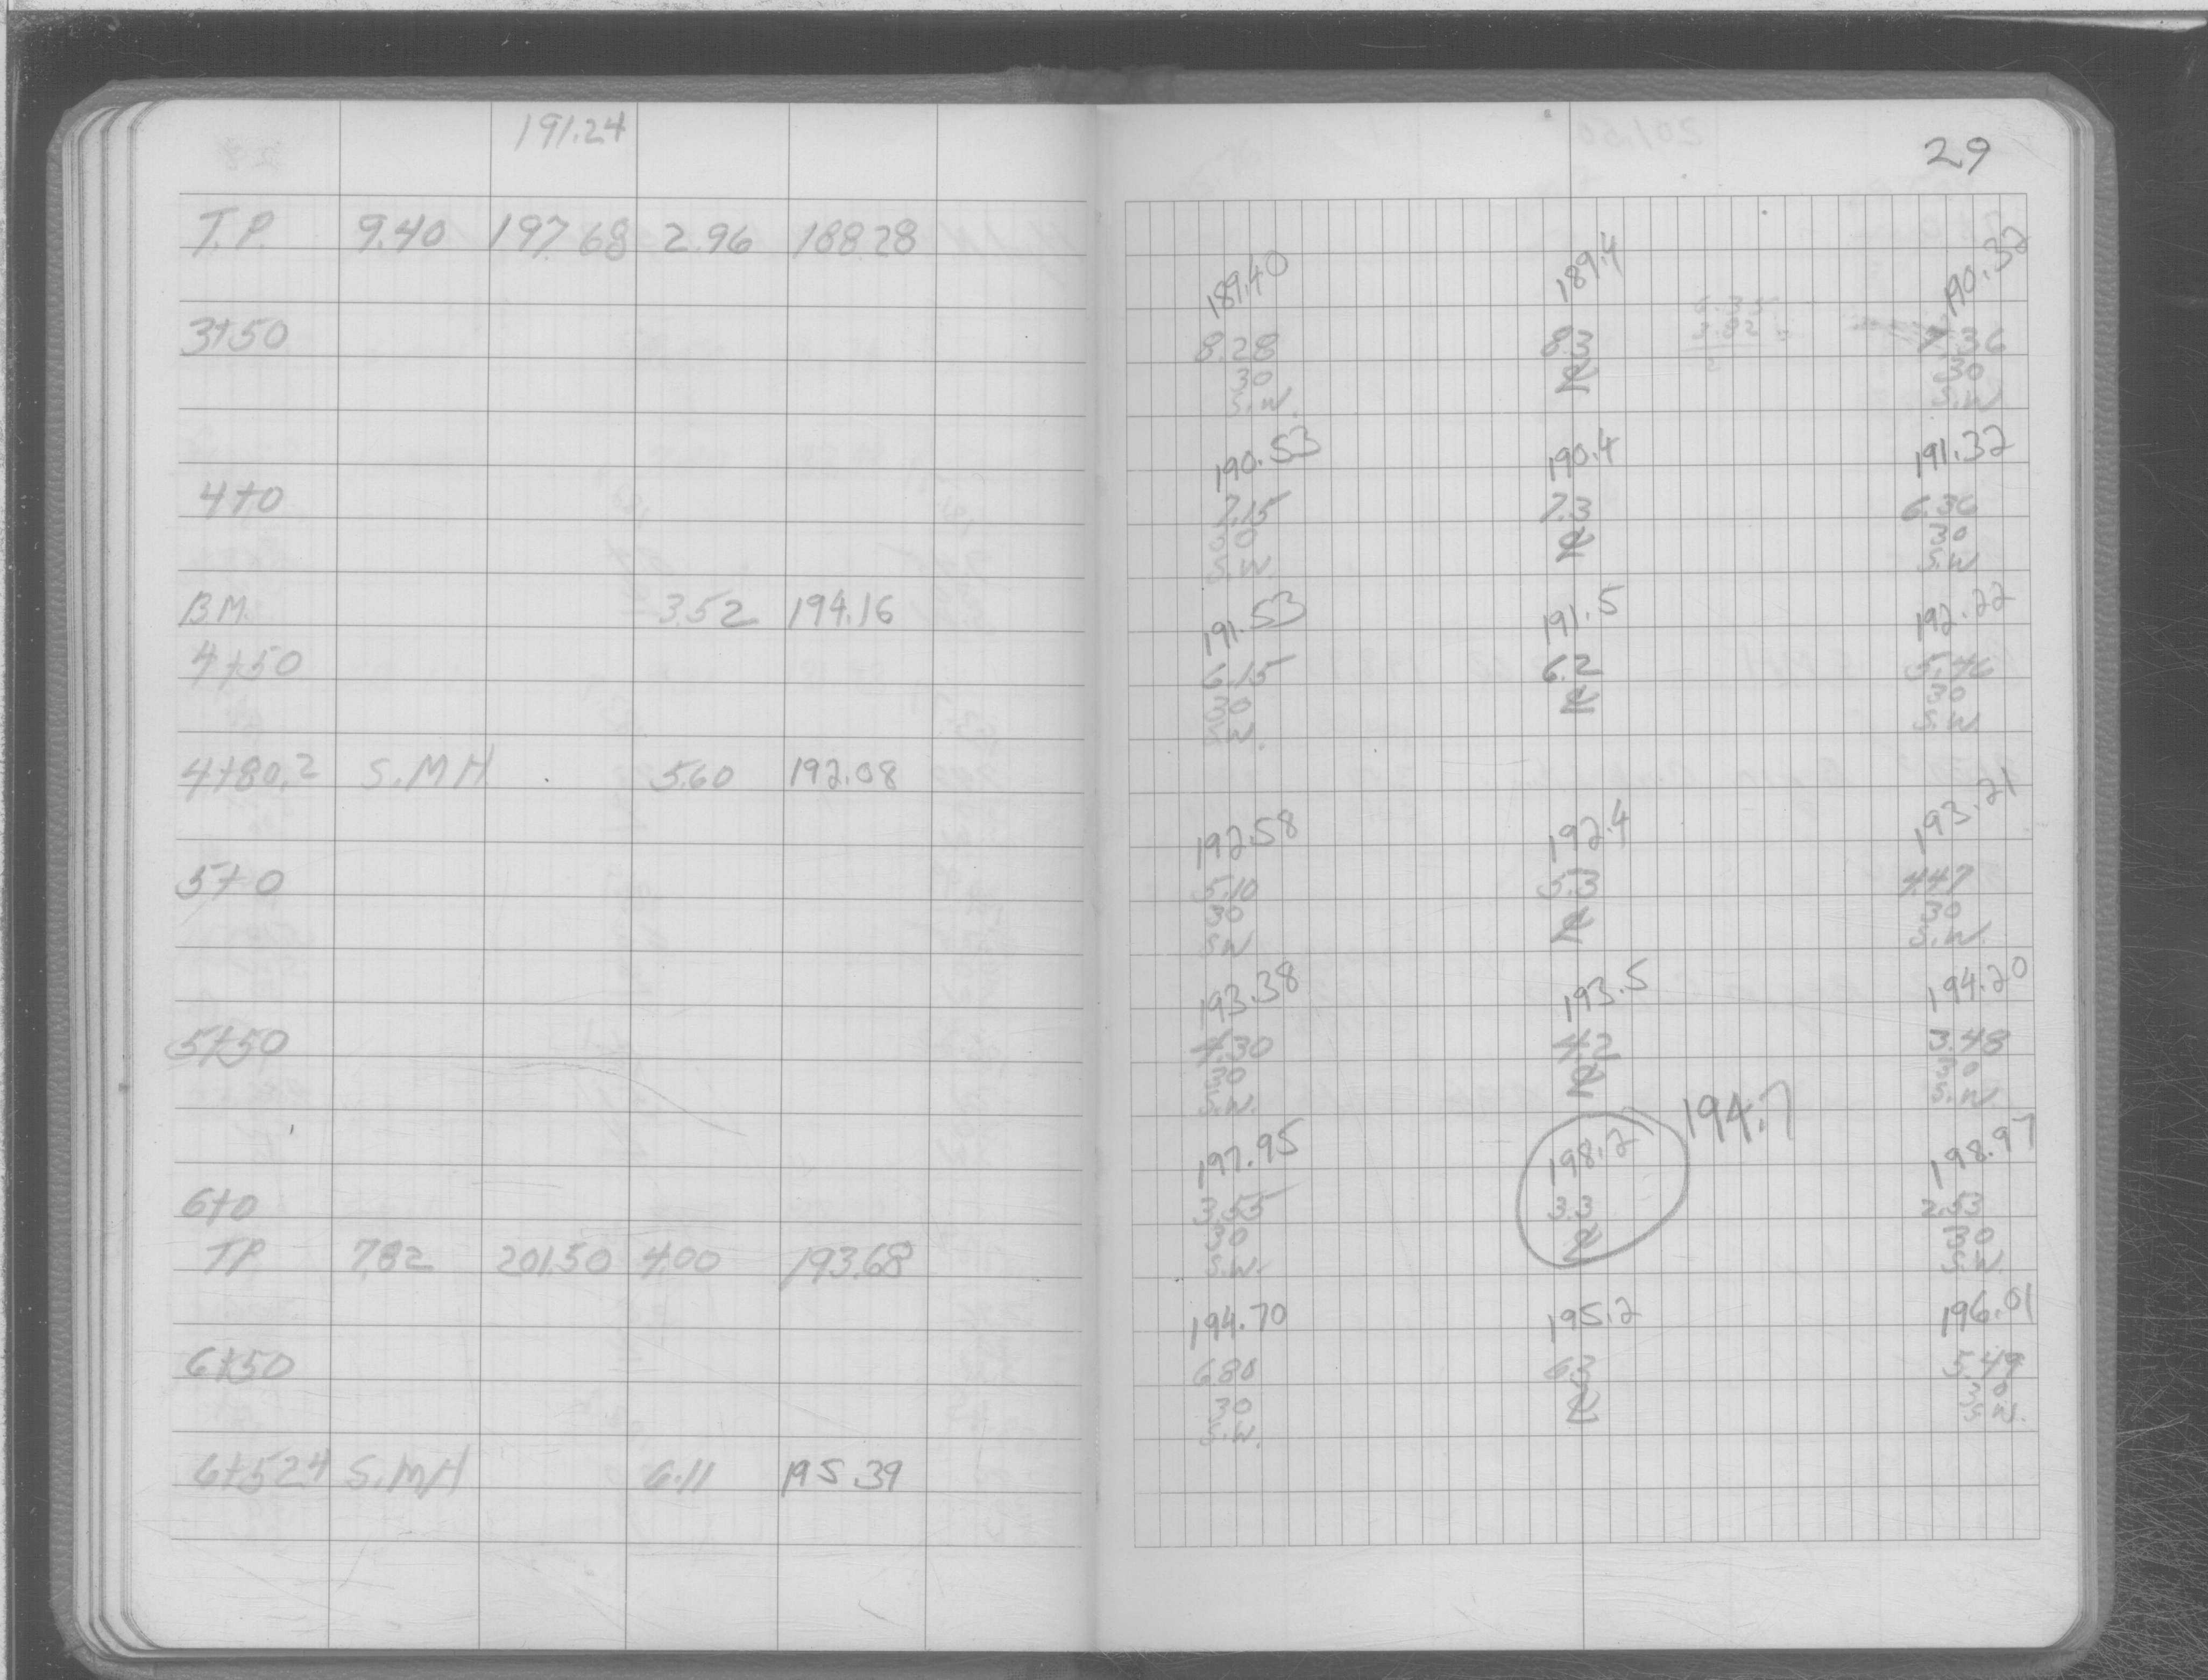 191.24
29
T.P. 9.40 197.68 2.96 188.28
189.40 189.4 190.32
3+50 8.28 8.3 7.36
30 30
S.W. S.W.
190.53 190.4 191.32
4+0 7.15 7.3 6.36
30 30
S.W. S.W.
B.M. 3.52 194.16
191.53 191.5 192.22
4+50 6.15 6.2 5.46
30 30
S.W. S.W.
4+80.2 S.M.H. 5.60 192.08
192.58 192.4 193.21
5+0 5.10 5.3 4.47
30 30
S.W. S.W.
193.38 193.5 194.20
5+50 4.30 4.2 3.48
30 30
S.W. S.W.
194.7
197.95 198.2 198.97
6+0 3.55 3.3 2.53
30 30
T.P. 7.82 201.50 4.00 193.68
S.W. S.W.
194.70 195.2 196.01
6+50 6.80 6.3 5.49
30 30
S.W. S.W.
6+52.4 S.M.H 6.11 195.39